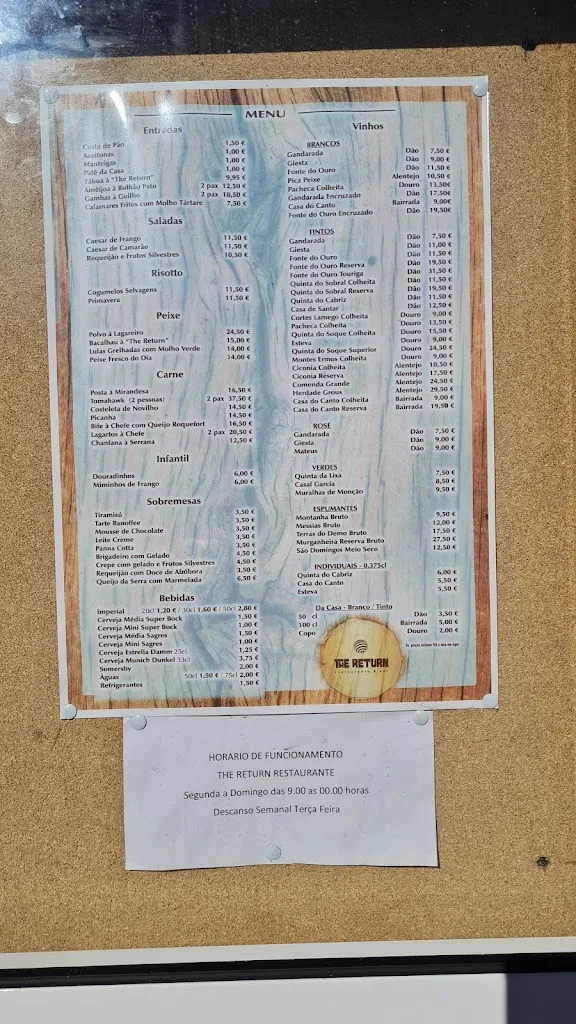 MENU
Entradas
Custo de Pão 1,50 €
Azeitonas 1,00 €
Manteigas 1,00 €
Patê da Casa 1,00 €
Tábua à "The Return" 9,95 €
Amêijoa à Bulhão Pato 2 pax 12,50 €
Gambas à Guilho 2 pax 16,50 €
Calamares Fritos com Molho Tártare 7,50 €
Saladas
Caesar de Frango 11,50 €
Caesar de Camarão 11,50 €
Requeijão e Frutos Silvestres 10,50 €
Risotto
Cogumelos Selvagens 11,50 €
Primavera 11,50 €
Peixe
Polvo à Lagareiro 24,50 €
Bacalhau à "The Return" 15,00 €
Lulas Grelhadas com Molho Verde 14,00 €
Peixe Fresco do Dia 14,00 €
Carne
Posta à Mirandesa 16,50 €
Tomahawk (2 pessoas) 2 pax 37,50 €
Costeleta de Novilho 14,50 €
Picanha 14,50 €
Bife à Chefe com Queijo Roquefort 16,50 €
Lagartos à Chefe 2 pax 20,50 €
Chanfana à Serrana 12,50 €
Infantil
Douradinhos 6,00 €
Miminhos de Frango 6,00 €
Sobremesas
Tiramisú 3,50 €
Tarte Banoffee 3,50 €
Mousse de Chocolate 3,50 €
Leite Creme 3,50 €
Panna Cotta 3,50 €
Brigadeiro com Gelado 4,50 €
Crepe com gelado e Frutos Silvestres 4,50 €
Requeijão com Doce de Abóbora 3,50 €
Queijo da Serra com Marmelada 6,50 €
Bebidas
Imperial 20cl 1,20 € / 30cl 1,60 € / 50cl 2,80 €
Cerveja Média Super Bock 1,50 €
Cerveja Mini Super Bock 1,00 €
Cerveja Média Sagres 1,50 €
Cerveja Mini Sagres 1,00 €
Cerveja Estrella Damm 25cl 1,25 €
Cerveja Munich Dunkel 33cl 3,75 €
Somersby 2,00 €
Águas 50cl 1,50 € / 75cl 2,00 €
Refrigerantes 1,50 €
Vinhos
BRANCOS
Gandarada Dão 7,50 €
Giesta Dão 9,00 €
Fonte do Ouro Dão 11,50 €
Pica Peixe Alentejo 10,50 €
Pacheca Colheita Douro 13,50€
Gandarada Encruzado Dão 17,50€
Casa do Canto Bairrada 9,00€
Fonte do Ouro Encruzado Dão 19,50€
TINTOS
Gandarada Dão 7,50 €
Giesta Dão 11,00 €
Fonte do Ouro Dão 11,50 €
Fonte do Ouro Reserva Dão 19,50 €
Fonte do Ouro Touriga Dão 31,50 €
Quinta do Sobral Colheita Dão 11,50 €
Quinta do Sobral Reserva Dão 19,50 €
Quinta do Cabriz Dão 11,50 €
Casa de Santar Dão 12,50 €
Cortes Lamego Colheita Douro 9,00 €
Pacheca Colheita Douro 13,50 €
Quinta do Soque Colheita Douro 15,50 €
Esteva Douro 9,00 €
Quinta do Soque Superior Douro 24,50 €
Montes Ermos Colheita Douro 9,00 €
Ciconia Colheita Alentejo 10,50 €
Ciconia Reserva Alentejo 17,50 €
Comenda Grande Alentejo 24,50 €
Herdade Grous Alentejo 29,50 €
Casa do Canto Colheita Bairrada 9,00 €
Casa do Canto Reserva Bairrada 19,50 €
ROSÉ
Gandarada Dão 7,50 €
Giesta Dão 9,00 €
Mateus Dão 9,00 €
VERDES
Quinta da Lixa 7,50 €
Casal Garcia 8,50 €
Muralhas de Monção 9,50 €
ESPUMANTES
Montanha Bruto 9,50 €
Messias Bruto 12,00 €
Terras do Demo Bruto 17,50 €
Murganheira Reserva Bruto 27,50 €
São Domingos Meio Seco 12,50 €
INDIVIDUAIS - 0,375cl
Quinta do Cabriz 6,00 €
Casa do Canto 5,50 €
Esteva 5,50 €
Da Casa - Branco / Tinto
50 cl Dão 3,50 €
100 cl Bairrada 5,00 €
Copo Douro 2,00 €
THE RETURN
HORARIO DE FUNCIONAMENTO
THE RETURN RESTAURANTE
Segunda a Domingo das 9.00 as 00.00 horas
Descanso Semanal Terça Feira